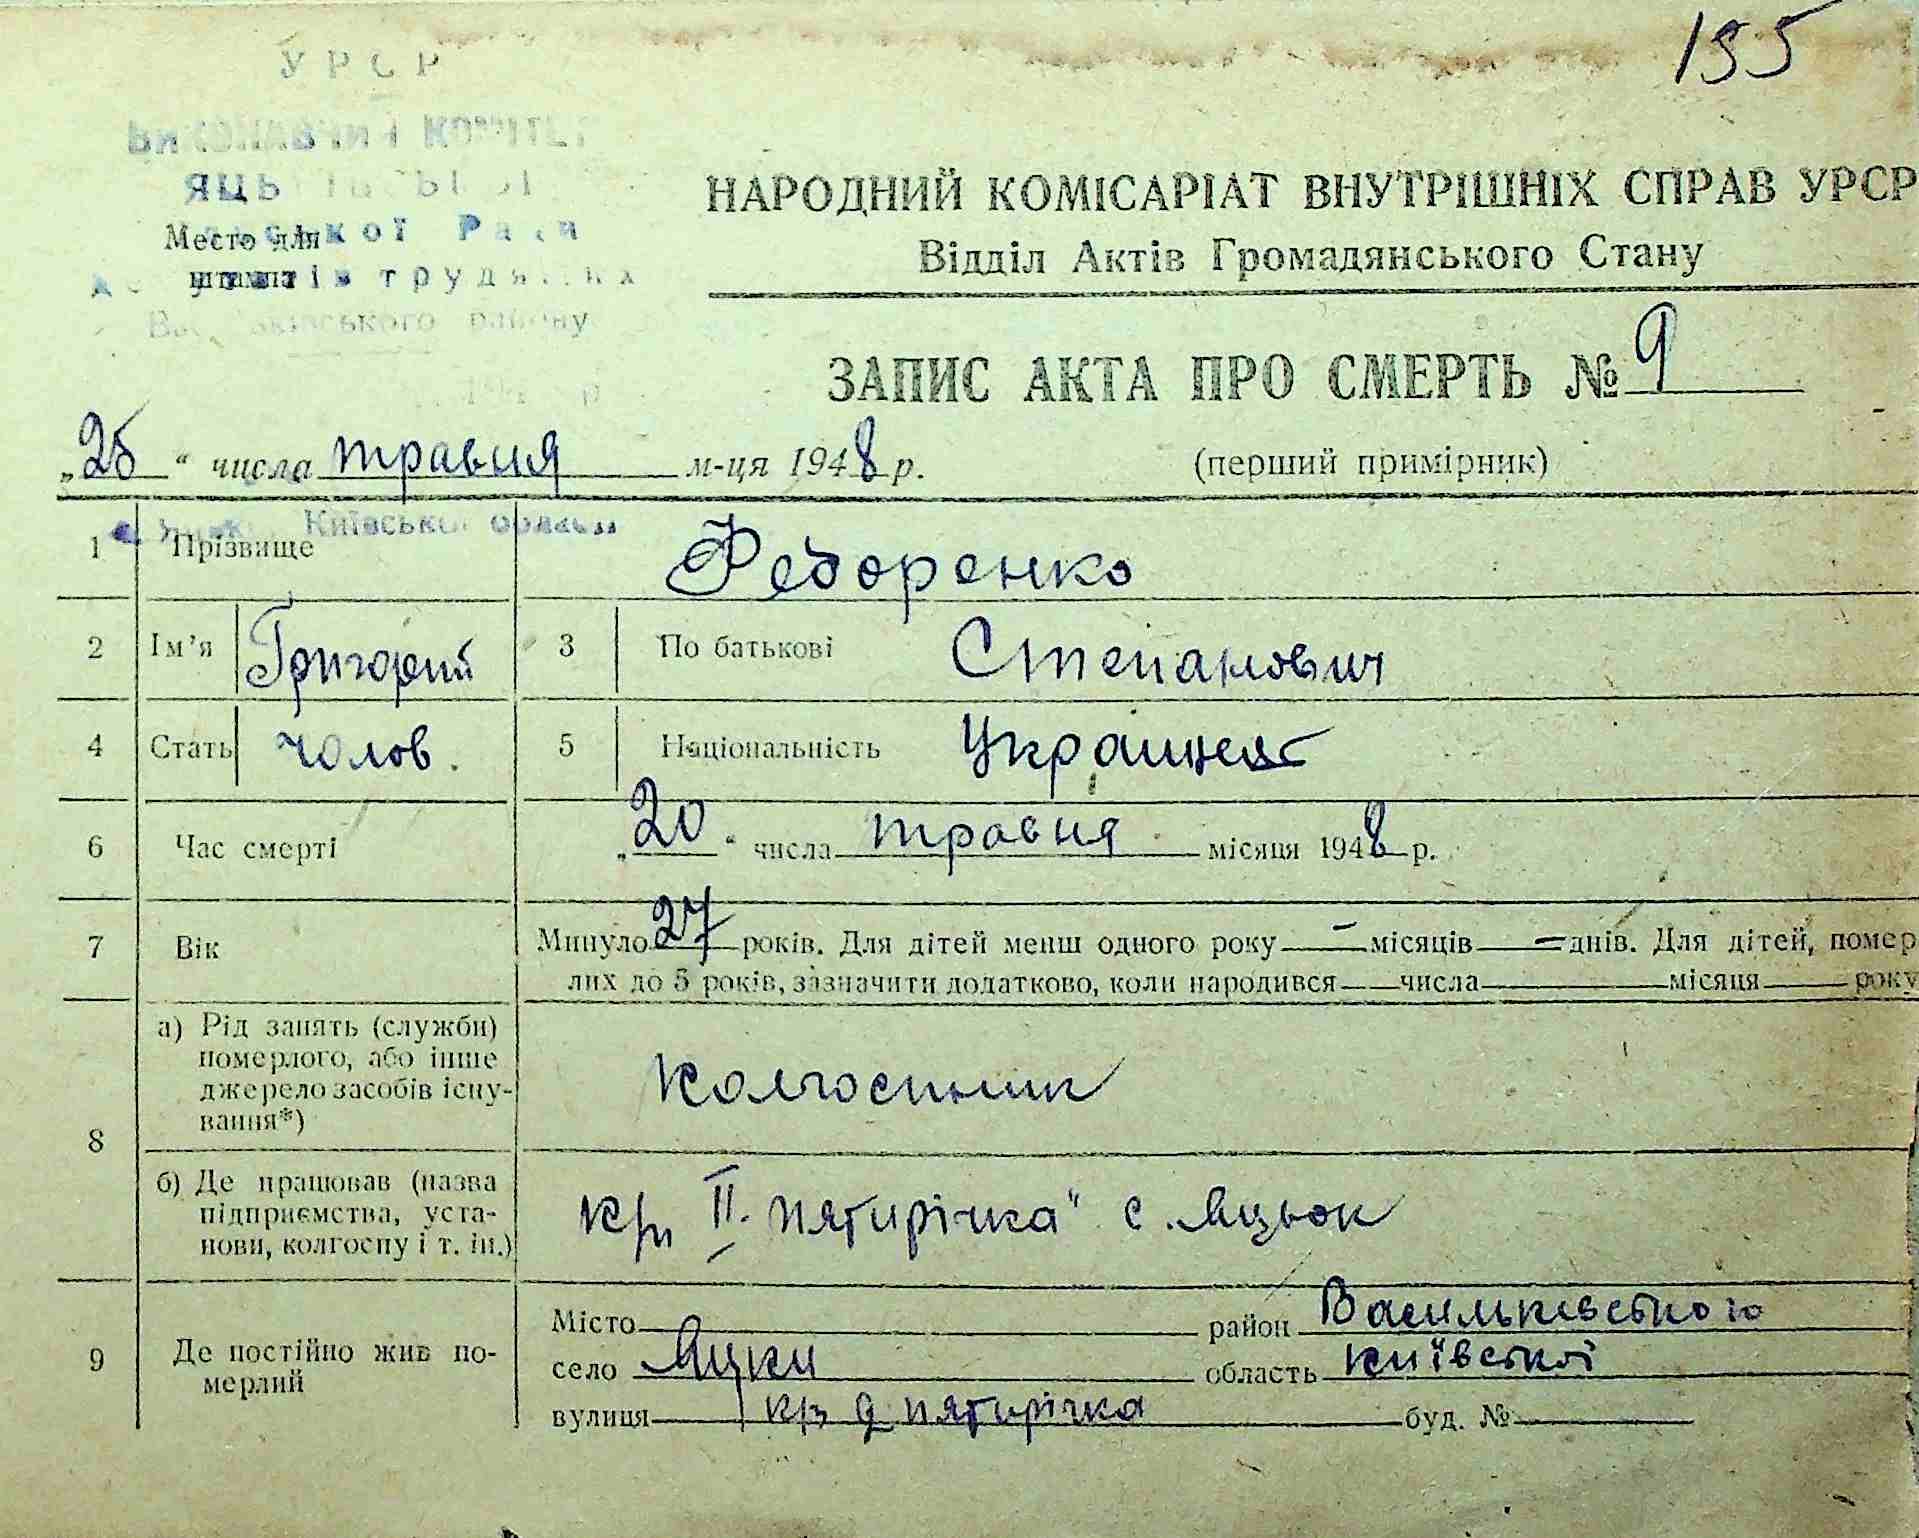 195
УРСР
ВИКОНАВЧИЙ КОМІТЕТ
Место для
штампа
Ради
трудящих
району
Київської області
НАРОДНИЙ КОМІСАРІАТ ВНУТРІШНІХ СПРАВ УРСР
Відділ Актів Громадянського Стану
ЗАПИС АКТА ПРО СМЕРТЬ № 9
„25“ числа травня м-ця 1948 р.
(перший примірник)
1 Прізвище Федоренко
2 Ім'я Григорий 3 По батькові Степанович
4 Стать чолов. 5 Національність Украинец
6 Час смерті „20“ числа травня місяця 1948 р.
7 Вік Минуло 27 років. Для дітей менш одного року — місяців — днів. Для дітей, помер
лих до 5 років, зазначити додатково, коли народився числа місяця року
8 а) Рід занять (служби)
померлого, або інше
джерело засобів існу-
вання*)
Колгоспник
б) Де працював (назва
підприємства, уста-
нови, колгоспу і т. ін.)
II. пятирічка" с. Яцьок
9 Де постійно жив по-
мерлий
Місто район Васильківського
село Яцки область київської
вулиця пятирічка буд. №